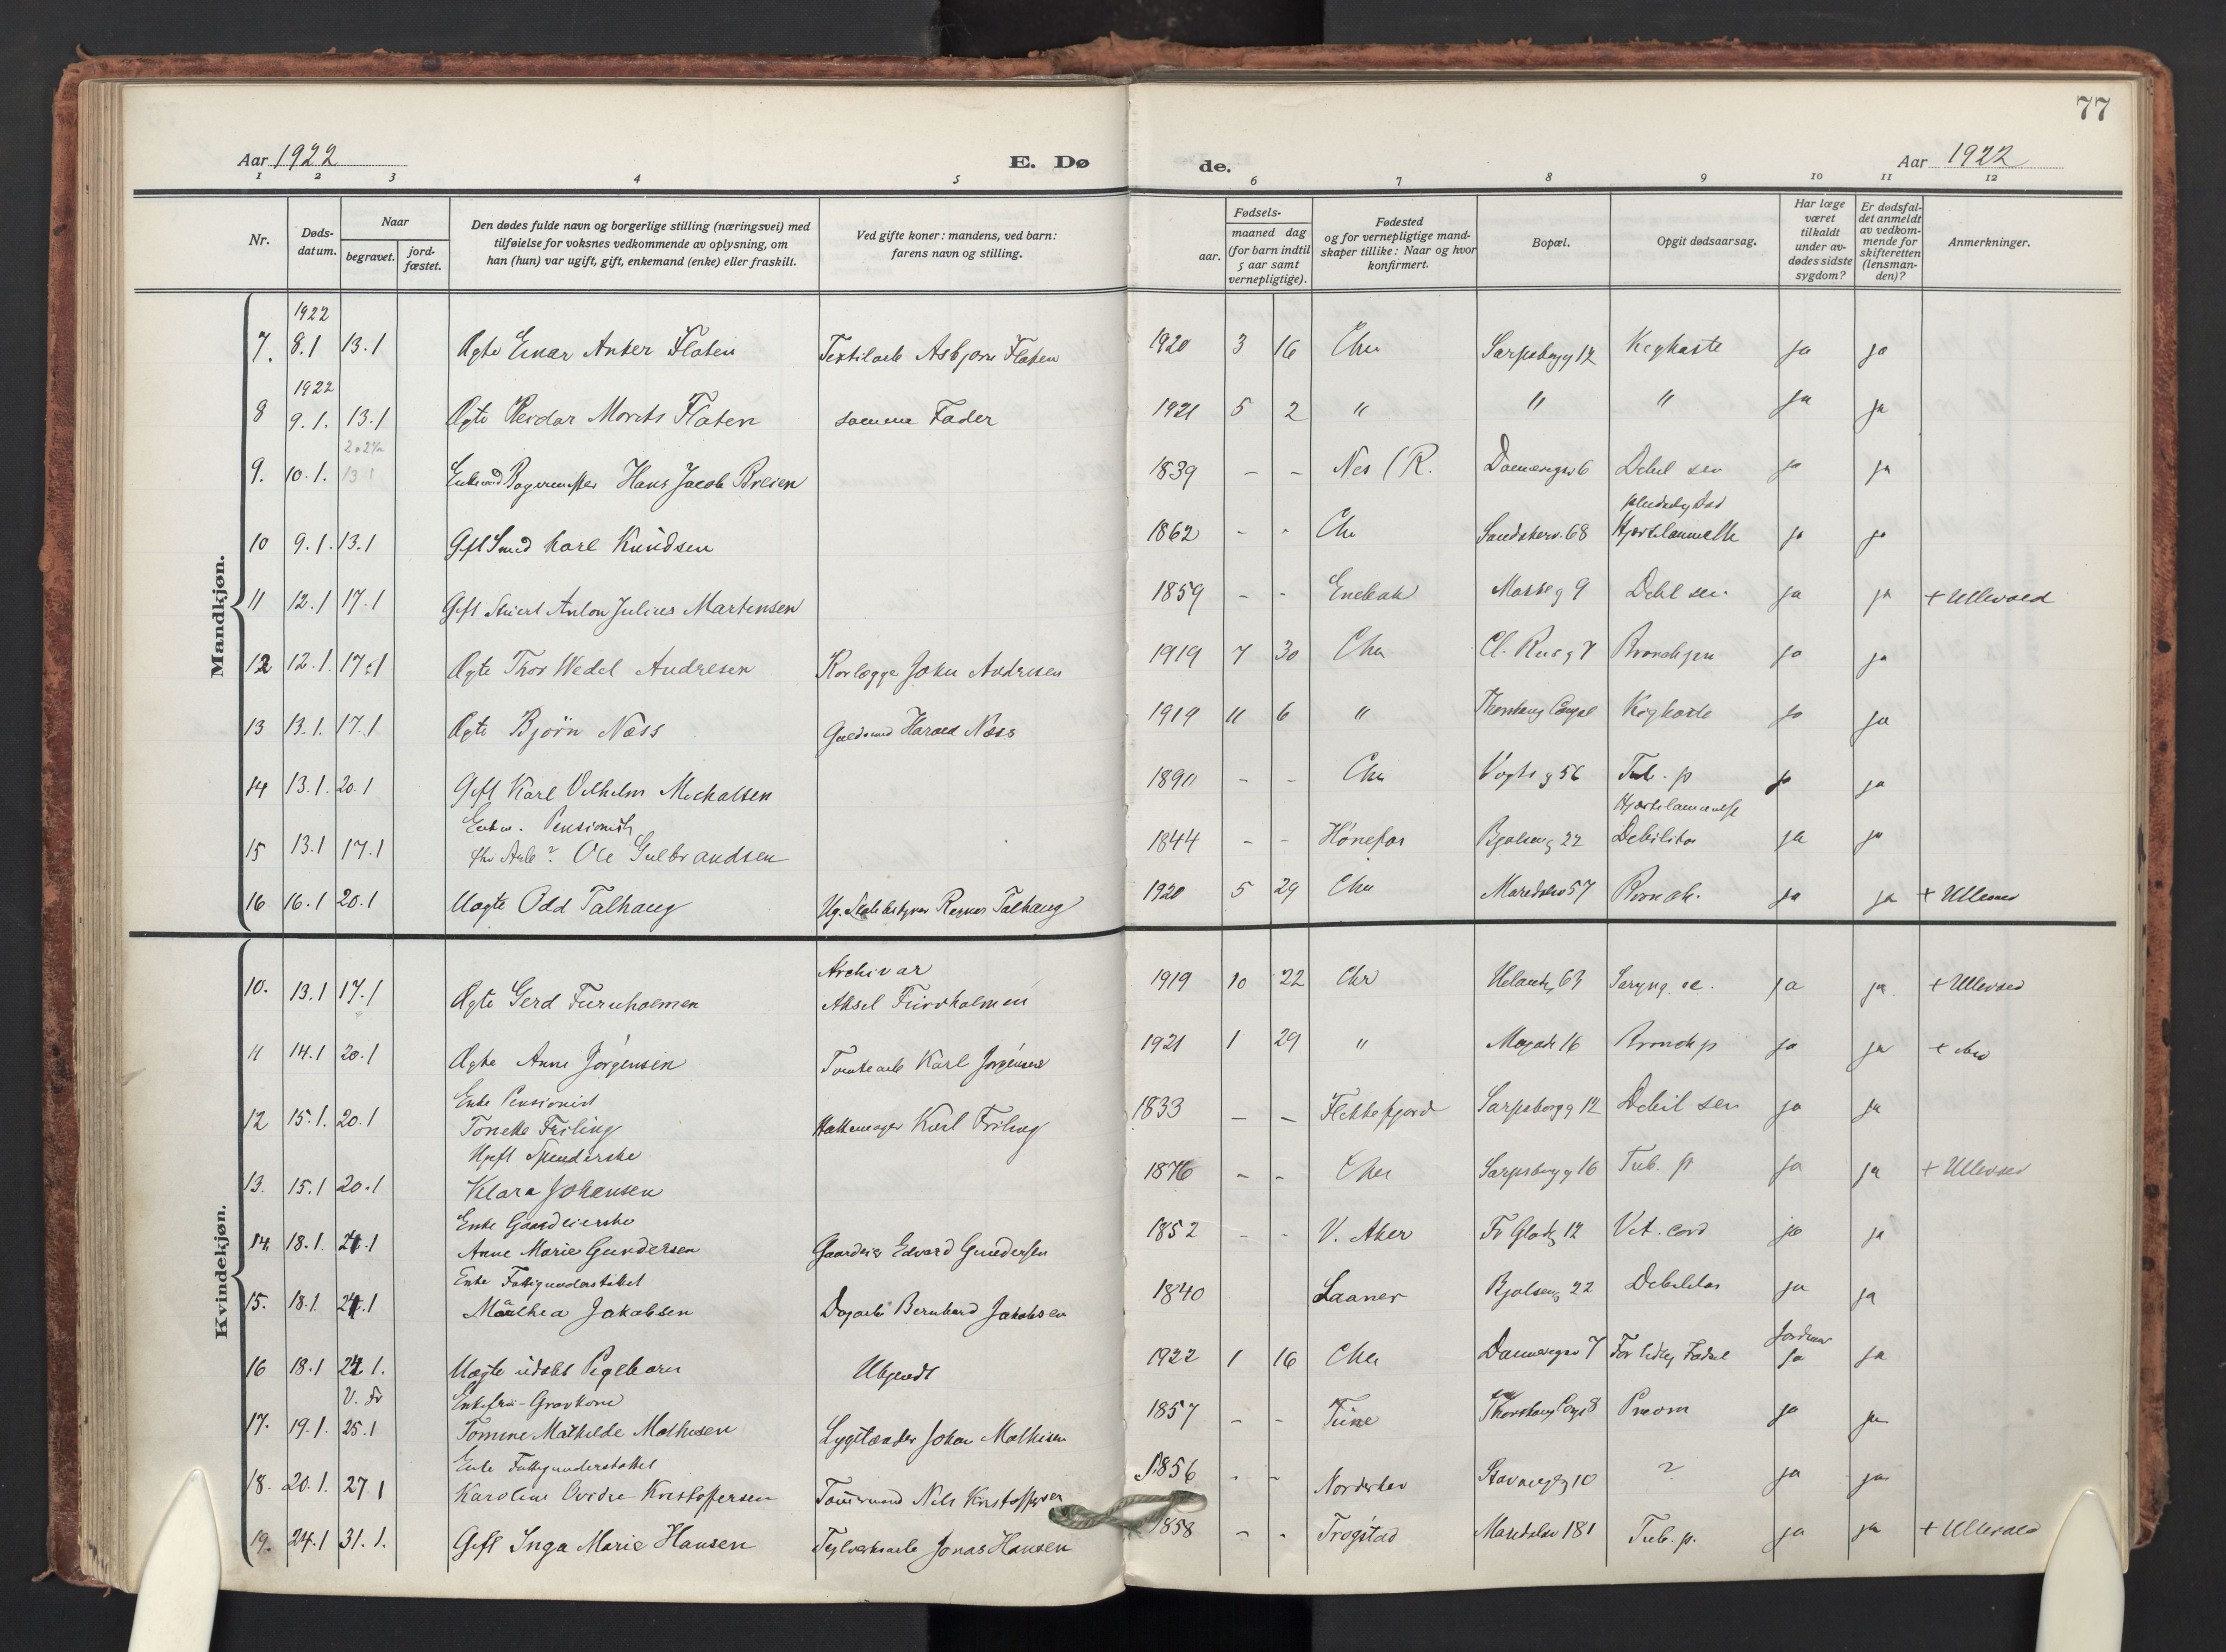 77
Aar 1922
E. Dø
de.
Aar 1922
1 2 3 4 5 6 7 8 9 10 11 12
Nr.
Døds-
datum.
Naar
begravet.
jord-
fæstet.
Den dødes fulde navn og borgerlige stilling (næringsvei) med
tilføielse for voksnes vedkommende av oplysning, om
han (hun) var ugift, gift, enkemand (enke) eller fraskilt.
Ved gifte koner: mandens, ved barn:
farens navn og stilling.
Fødsels-
aar.
maaned dag
(for barn indtil
5 aar samt
vernepligtige).
Fødested
og for vernepligtige mand-
skaper tillike: Naar og hvor
konfirmert.
Bopæl.
Opgit dødsaarsag.
Har læge
været
tilkaldt
under av-
dødes sidste
sygdom?
Er dødsfal-
det anmeldt
av vedkom-
mende for
skifteretten
(lensman-
den)?
Anmerkninger.
Mandkjøn.
1922
7. 8.1 13.1 Ægte Einar Anker Flaten Textilarb Asbjørn Flaten 1920 3 16 Chra Sarpsborgg 12 Kighoste ja ja
1922
8 9.1. 13.1 Ægte Reidar Morits Flaten samme Fader 1921 5 2 " " " ja ja
9. 10.1. 13.1 Hans Jacob Breien 1839 - - Nes (R. Dannevigsv 6 Debil sen ja ja
10 9.1. 13.1 Gift Smed Karl Knudsen 1862 - - Chr Sandakerv. 68 ja ja
11 12.1 17.1 Gift Anton Julius Martinsen 1859 - - Enebak Mosseg 9 Debil sen. ja ja + Ullevaal
12 12.1. 17.1 Ægte Thor Wedel Andresen Rørlægge John Andresen 1919 7 30 Chra Cl. Rusg 7 Bronchpn ja ja
13 13.1. 17.1 Ægte Bjørn Næss Guldsmed Harald Næss 1919 11 6 " Kighoste ja ja
14 13.1. 20.1 Gift Karl Vilhelm Michalsen 1890 - - Chra Vogts g 56 Tub. p ja ja
Enkem. Pensionist
15 13.1 17.1 Ole Gulbrandsen 1844 - - Hønefos Bjølseng 22 Debilitas ja ja
16 16.1 20.1 Uægte Odd Talhaug Ug. Ragna Talhaug 1920 5 29 Chra Maridalsv 57 Bronch. ja ja + Ullevaal
Kvindekjøn.
Archivar
10. 13.1 17.1 Ægte Gerd Furuholmen Aksel Furuholmen 1919 10 22 Chr 63 ja ja + Ullevaal
11 14.1 20.1 Ægte Anne Jørgensen Tomtearb Karl Jørgensen 1921 1 29 " 16 Bronch p ja ja
Enke Pensionist
12 15.1. 20.1 Tonette Friling Karl Friling 1833 - - Flekkefjord Sarpsborgg 12 Debil sen ja ja
Ugift Spinderske
13. 15.1 20.1 Klara Johansen 1876 - - Chra Sarpsborgg 16 Tub. p ja ja + Ullevaal
Enke Gaardeierske
14. 18.1. 24.1 Anne Marie Gundersen Gaardeier Edvard Gundersen 1852 - - V. Aker 12 Vit. cord ja ja
Enke Fattigunderstøttet
15. 18.1. 24.1 Mathea Jakobsen Dagarb Bernhard Jakobsen 1840 Laaner Bjølseng 22 Debilitas ja ja
Jordmor
16 18.1 24.1. Uægte udøbt Pigebarn Ubekjendt 1922 1 16 Chra Dannevigsv 7 For tidlig Fødsel ja ja
17. 19.1. 25.1 Tomine Mathilde Mathisen Lygtetænder Johan Mathisen 1857 - - Tune Pneum ja ja
Enke Fattigunderstøttet
18. 20.1. 27.1 Karoline Kristoffersen Tømmermand Nils Kristoffersen 1856 - - Norderhov Stavangerg 10 ? ja ja
19. 24.1 31.1. Gift Inga Marie Hansen Teglverksarb Jonas Hansen 1858 - - Trøgstad Maridalsv 181 Tub. p. ja ja + Ullevaal